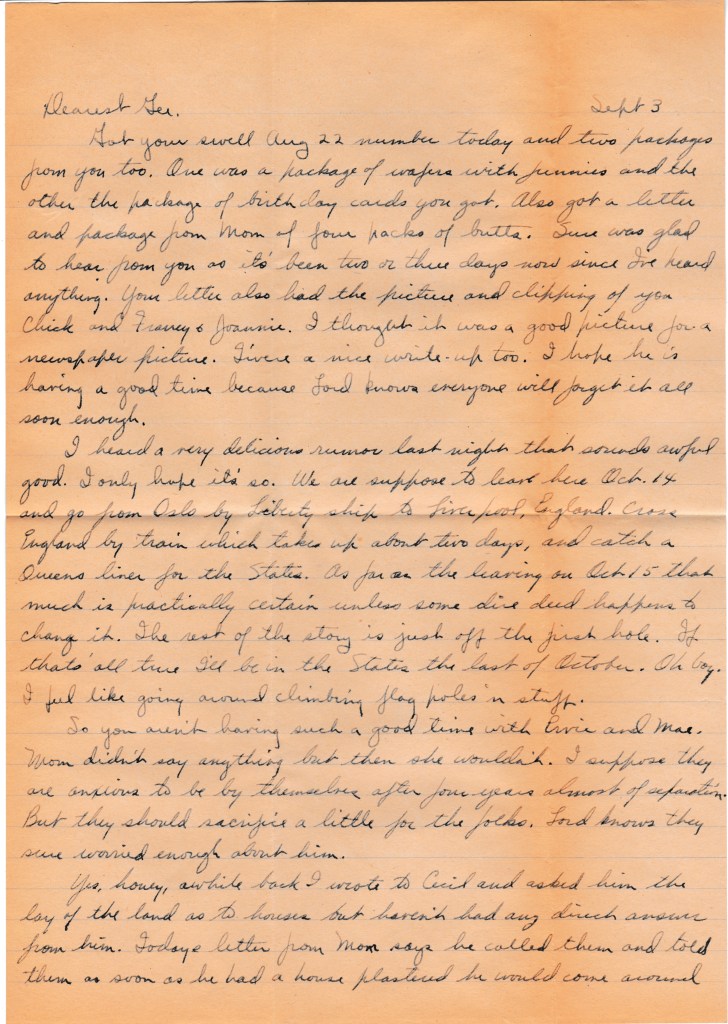 Dearest Gee.
Sept 3
Got your swell Aug 22 number today and two packages
from you too. One was a package of wafers with pennies and the
other the package of birthday cards you got. Also got a letter
and package from Mom of four packs of butts. Sure was glad
to hear from you as it's been two or three days now since I've heard
anything. Your letter also had the picture and clipping of you
Chick and Franey & Joannie. I thought it was a good picture for a
newspaper picture. T'were a nice write-up too. I hope he is
having a good time because Lord knows everyone will forget it all
soon enough.
I heard a very delicious rumor last night that sounds awful
good. I only hope it's so. We are suppose to leave here Oct. 14
and go from Oslo by Liberty ship to Liverpool, England. Cross
England by train which takes up about two days, and catch a
Queens liner for the States. As far as the leaving on Oct 15 that
much is practically certain unless some dire deed happens to
change it. The rest of the story is just off the first hole. If
thats' all true I'll be in the States the last of October. Oh boy.
I feel like going around climbing flag poles 'n stuff.
So you aren't having such a good time with Ervie and Mae.
Mom didn't say anything but then she wouldn't. I suppose they
are anxious to be by themselves after four years almost of separation.
But they should sacrifice a little for the folks. Lord knows they
sure worried enough about him.
Yes, honey, awhile back I wrote to Cecil and asked him the
lay of the land as to houses but haven't had any direct answer
from him. Todays letter from Mom says he called them and told
them as soon as he had a house plastered he would come around